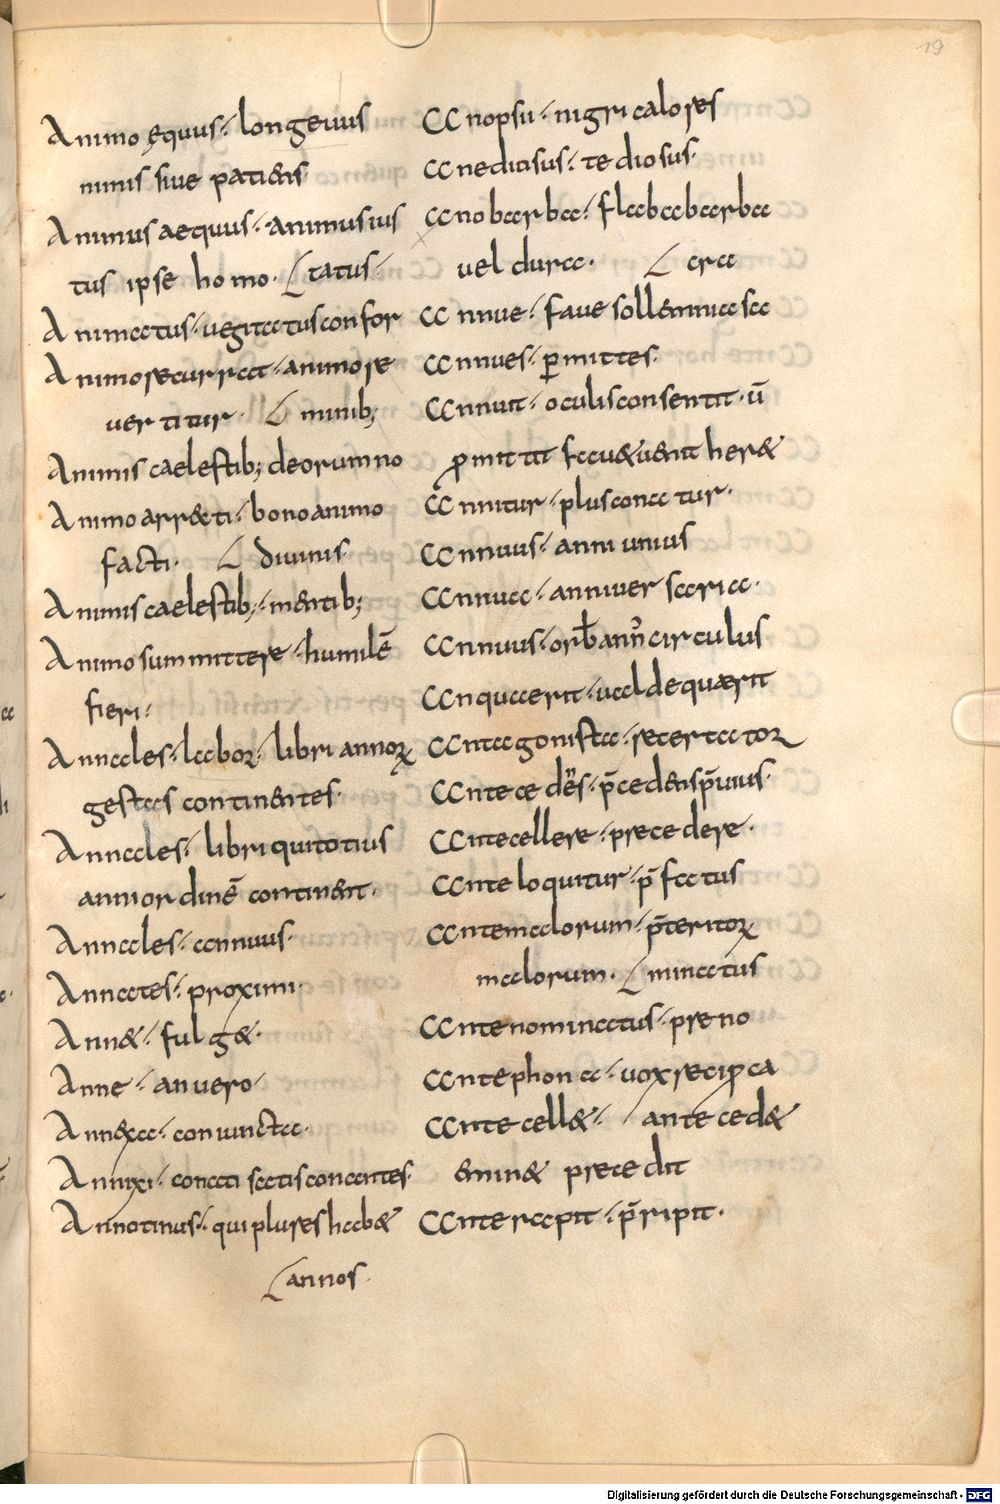 19
Animo ęquus· longeuus
nimis siue patiens·
Animus aequus· animus ius
tus ipse homo· tatus·
Animatus· uegitatus confor
Animo recurrat· animo re
uertitur· minib;
Animis caelestib; deorum no
Animo arrecti· bono animo
facti· diuinis·
Animis caelestib;· mentib;
Animo summittere· humilē
fieri·
Annales· labor· libri annorꝝ
gestas continentes·
Annales· libri qui totius
anni ordinē continent·
Annales· annuus·
Annates· proximi·
Ann&· fulg&·
Anne· an uero·
Annexa· coniuncta·
Annixi· conati satis conantes·
Annotinus· qui plures hab&
annos·
Anopsii· nigri calores
Aneditisus· tediosus·
Anobarba· flababarba
uel dura· cra
Annue· faue sollemnia sca
Annues· ꝑmittes·
Annuit· oculis consentit· ū
ꝓmittit fauet uenit her&
Annitur· plus conatur·
Annuus· anni unius
Annua· anniuersaria·
Annuus· orb ann circulus
Anquaerit· ualde quærit
Antagonista· recertator
Antecedēs· p̄cedens p̄uius·
Antecellere· precedere·
Anteloquitur· p̄fatus
Antemalorum· p̄teritorꝝ
malorum· minatus
Antenominatus· preno
Antephona· uox reciproca
Antecell&· anteced&
emin& precedit
Anterapit· p̄ripit·
Digitalisierung gefördert durch die Deutsche Forschungsgemeinschaft - DFG